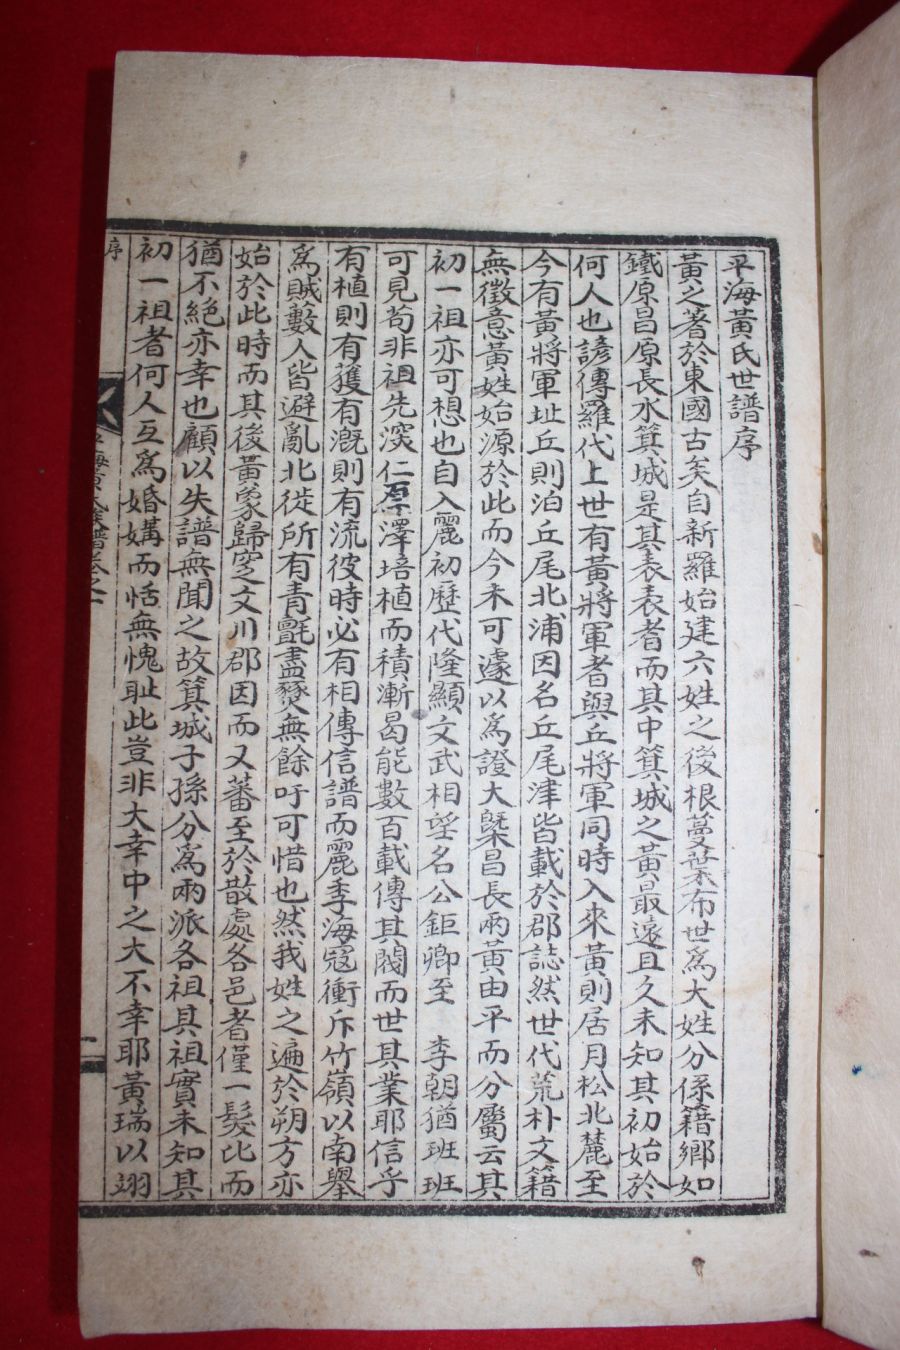 平海黃氏世譜序
黃之著於東國古矣自新羅始建六姓之後根蔓葉布世爲大姓分係籍鄉如
鐵原昌原長水箕城是其表表者而其中箕城之黃最遠且久未知其初始於
何人也諺傳羅代上世有黃將軍者與丘將軍同時入來黃則居月松北麓至
今有黃將軍址丘則泊丘尾北浦因名丘尾津皆載於郡誌然世代荒朴文籍
無徵意黃姓始源於此而今未可遽以爲證大槩昌長兩黃由平而分屬云其
初一祖亦可想也自入麗初歷代隆顯文武相望名公鉅卿至 李朝猶班班
可見苟非祖先深仁厚澤培植而積漸曷能數百載傳其閥而世其業耶信乎
有植則有獲有漑則有流彼時必有相傳信譜而麗季海寇衝斥竹嶺以南擧
爲賊藪人皆避亂北徙所有青氈盡爇無餘吁可惜也然我姓之遍於朔方亦
始於此時而其後黃象歸定文川郡因而又蕃至於散處各邑者僅一髮比而
猶不絕亦幸也顧以失譜無聞之故箕城子孫分爲兩派各祖其祖實未知其
初一祖者何人互爲婚媾而恬無愧耻此豈非大幸中之大不幸耶黃瑞以翊
序